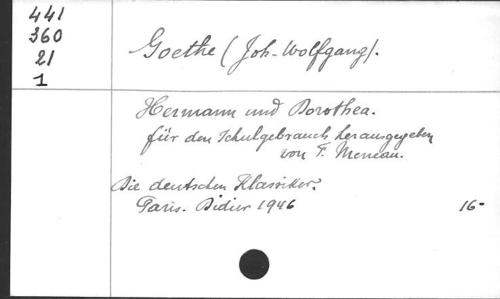 441
360
21
1
Goethe (Joh-Wolfgang).
Hermann und Dorothea.
für den Schulgebrauch herausgegeben
von F. Meneau.
Die deutschen Klassiker.
Paris. Didier 1946
16-